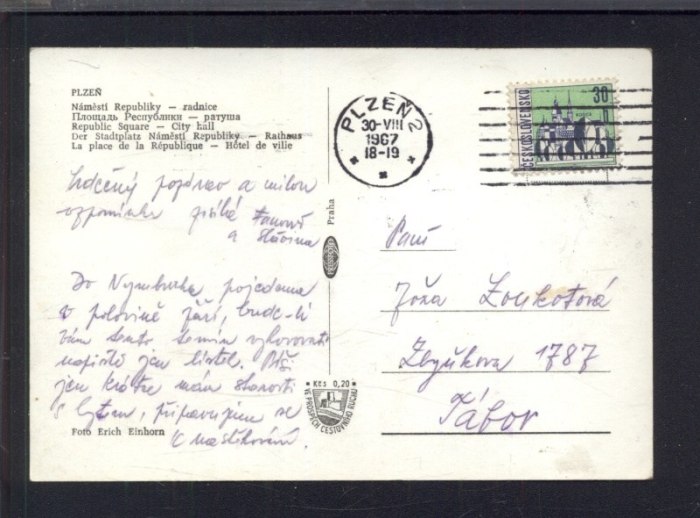 PLZEŇ
Náměstí Republiky — radnice
Площадь Республики — ратуша
Republic Square — City hall
Der Stadtplatz Náměstí Republiky — Rathaus
La place de la République — Hôtel de ville
Srdečný pozdrav a milou
vzpomínku posílá
a
Do Nymburka pojedeme
v polovině září, bude-li
vám tento termín vyhovovati
napište jen lístek. Píši
jen krátce mám starosti
s bytem, připravujem se
k nastěhování.
Foto Erich Einhorn
Praha
PRESSFOTO
Kčs 0,20
VE PROSPĚCH CESTOVNÍHO RUCHU
PLZEŇ 2
30-VIII
1967
18-19
ČESKOSLOVENSKO
30
h
Paní
Zbyňkova 1787
Tábor